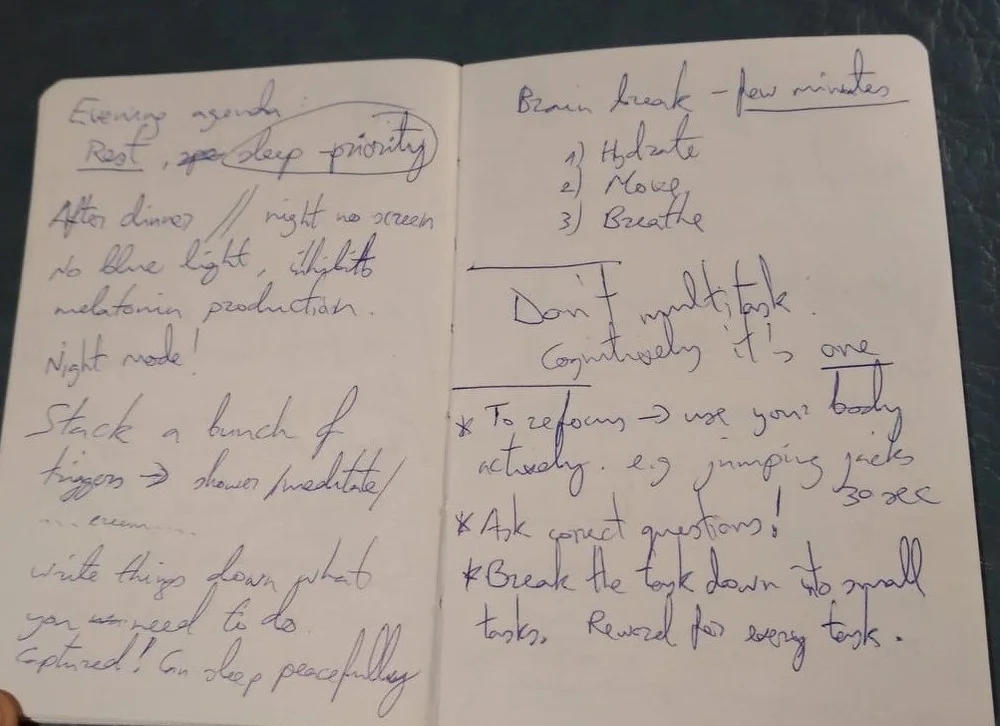 Evening agenda:
Rest, sleep - priority
After dinner // night no screen
No blue light, inhibits
melatonin production.
Night mode!
Stack a bunch of
triggers → shower/meditate/
write things down what
you need to do.
Captured! Can sleep peacefully
Brain break - few minutes
1) Hydrate
2) Move,
3) Breathe
Don't multitask.
Cognitively it's one
* To refocus → use your body
actively. e.g jumping jacks
30 sec
* Ask correct questions!
* Break the task down into small
tasks. Reward for every task.